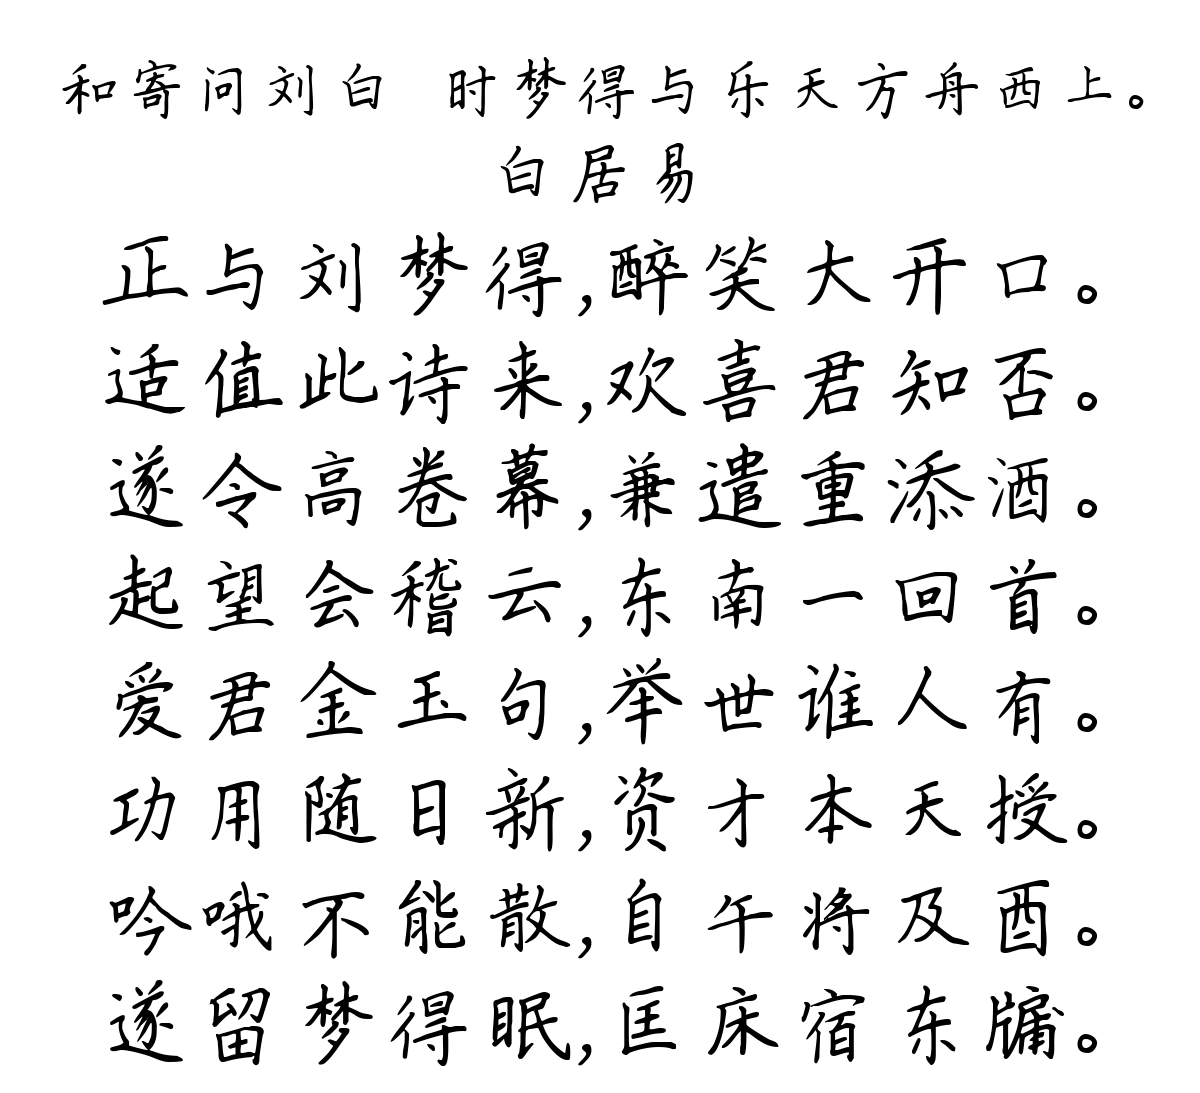 和寄问刘白 时梦得与乐天方舟西上。
白居易
正与刘梦得,醉笑大开口。
适值此诗来,欢喜君知否。
遂令高卷幕,兼遣重添酒。
起望会稽云,东南一回首。
爱君金玉句,举世谁人有。
功用随日新,资才本天授。
吟哦不能散,自午将及酉。
遂留梦得眠,匡床宿东牖。